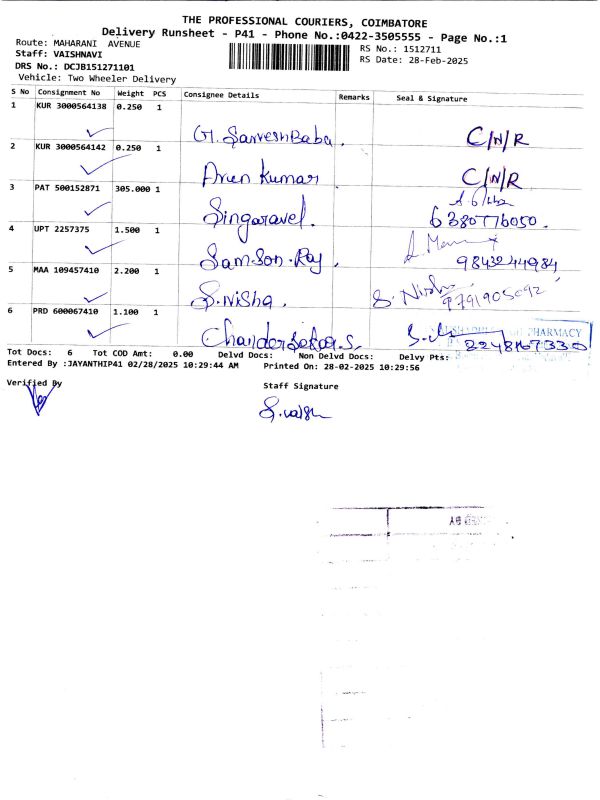 THE PROFESSIONAL COURIERS, COIMBATORE
Delivery Runsheet - P41 - Phone No.:0422-3505555 - Page No.:1
Route: MAHARANI AVENUE
RS No.: 1512711
Staff: VAISHNAVI
RS Date: 28-Feb-2025
DRS No.: DCJB151271101
Vehicle: Two Wheeler Delivery
S No Consignment No Weight PCS Consignee Details Remarks Seal & Signature
1 KUR 3000564138 0.250 1
G. SarveshBaba. C/N/R
2 KUR 3000564142 0.250 1
Arun Kumar C/N/R
3 PAT 500152871 305.000 1
Singaravel. 6380776050.
4 UPT 2257375 1.500 1
Samson.Raj. 9843244984
5 MAA 109457410 2.200 1
S.Nisha. S. Nisha 9791905092
6 PRD 600067410 1.100 1
PHARMACY
Chandersekar.s.
Tot Docs: 6 Tot COD Amt: 0.00 Delvd Docs: Non Delvd Docs: Delvy Pts:
Entered By :JAYANTHIP41 02/28/2025 10:29:44 AM Printed On: 28-02-2025 10:29:56
Verified By Staff Signature